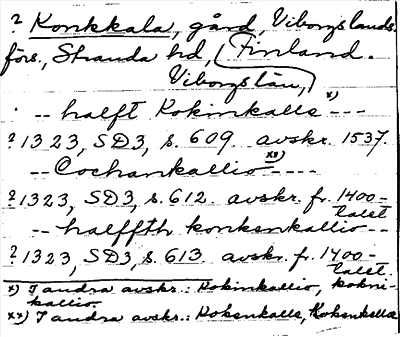 ? Konkkala, gård, Viborgs lands-
förs., Stranda hd, (Finland.
Viborgs län,)
-- halft Kokinkalle x) ---
? 1323, SD3, s. 609. avskr. 1537.
-- Cochankallio xx) ----
? 1323, SD3, s. 612. avskr. fr. 1400-
talet
-- halffth konkenkallio --
? 1323, SD3, s. 613. avskr. fr. 1400-
talet.
x) I andra avskr.: Kokinkallio, kokni-
kallio.
xx) I andra avskr.: Kokenkalle, Kokenkallæ